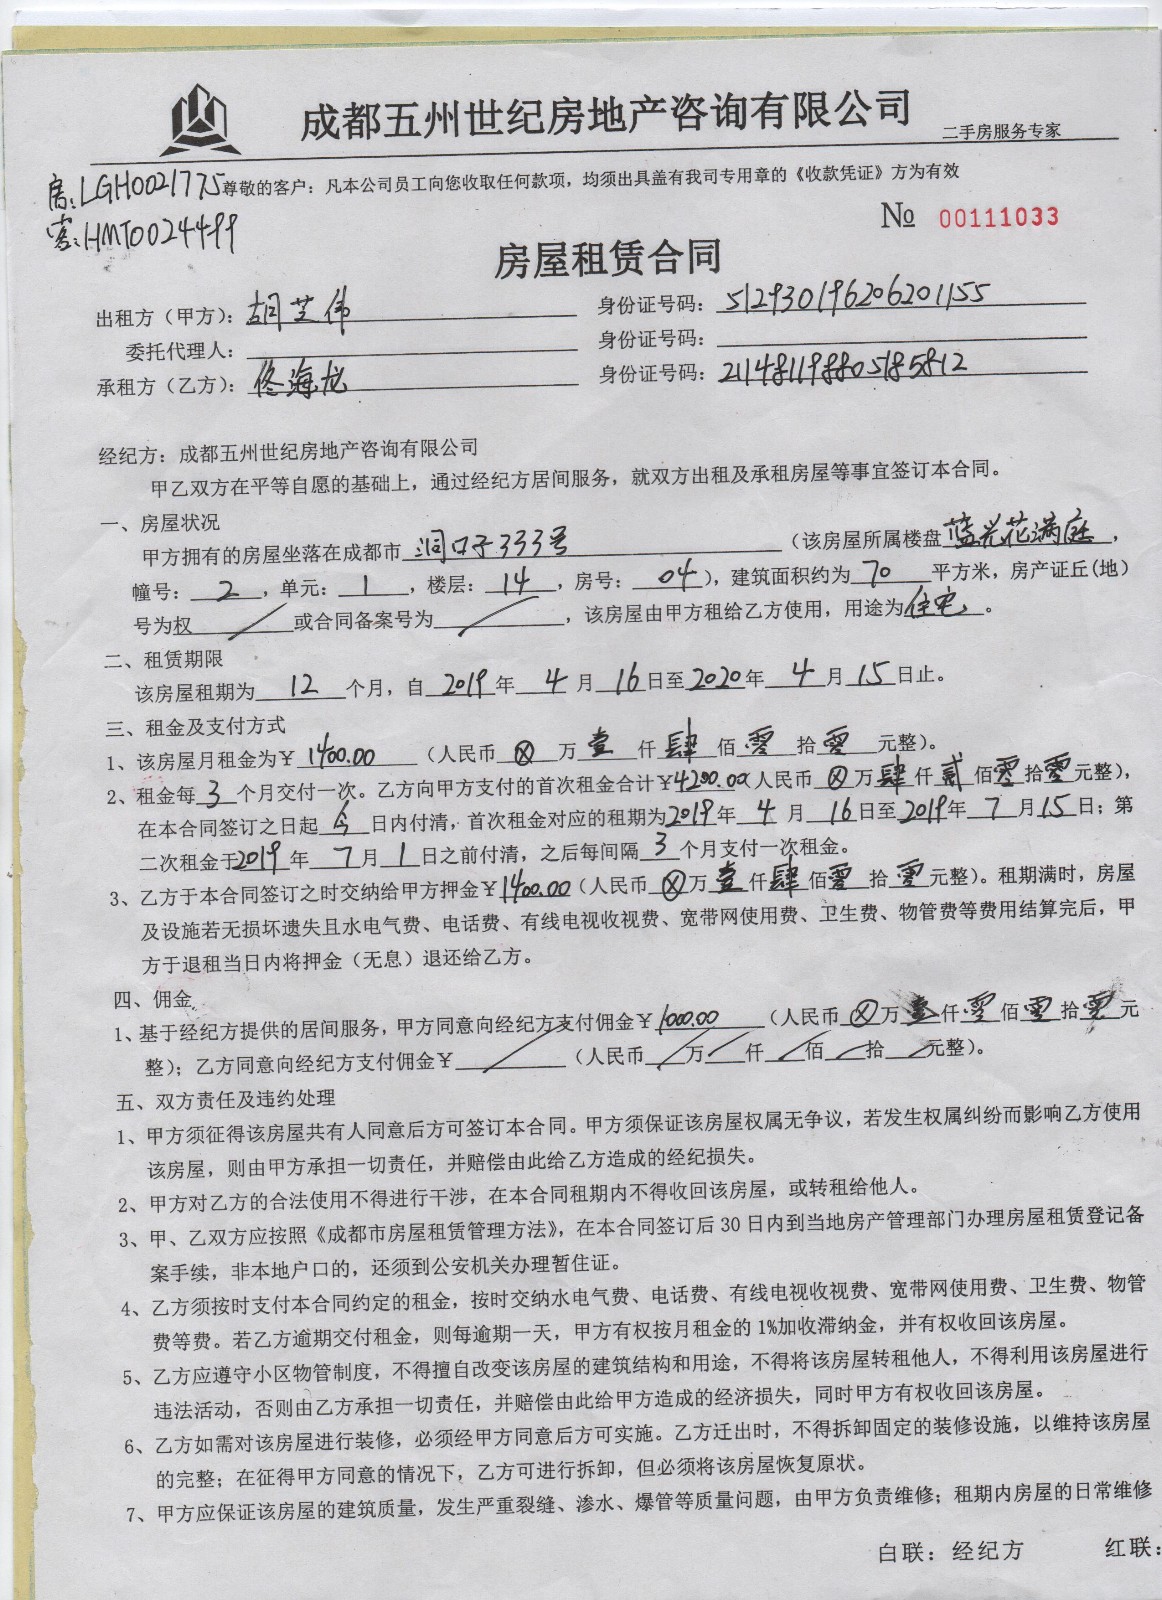 成都五州世纪房地产咨询有限公司 二手房服务专家
房:LGH0021775 尊敬的客户：凡本公司员工向您收取任何款项，均须出具盖有我司专用章的《收款凭证》方为有效
客:HMT0024499
№ 00111033
房屋租赁合同
出租方（甲方）：胡芝伟 身份证号码：512930196206201155
委托代理人： 身份证号码：
承租方（乙方）：佟海龙 身份证号码：211481198805185812
经纪方：成都五州世纪房地产咨询有限公司
甲乙双方在平等自愿的基础上，通过经纪方居间服务，就双方出租及承租房屋等事宜签订本合同。
一、房屋状况
甲方拥有的房屋坐落在成都市 洞子口333号 （该房屋所属楼盘 蓝光花满庭，
幢号：2，单元：1，楼层：14，房号：04），建筑面积约为 70 平方米，房产证丘(地)
号为权 / 或合同备案号为 /，该房屋由甲方租给乙方使用，用途为 住宅。
二、租赁期限
该房屋租期为 12 个月，自 2019 年 4 月 16 日至 2020 年 4 月 15 日止。
三、租金及支付方式
1、该房屋月租金为￥1400.00（人民币 ⊗ 万 壹 仟 肆 佰 零 拾 零 元整）。
2、租金每 3 个月交付一次。乙方向甲方支付的首次租金合计￥4200.00（人民币 ⊗ 万 肆 仟 贰 佰 零 拾 零 元整），
在本合同签订之日起 今 日内付清，首次租金对应的租期为 2019 年 4 月 16 日至 2019 年 7 月 15 日；第
二次租金于 2019 年 7 月 1 日之前付清，之后每间隔 3 个月支付一次租金。
3、乙方于本合同签订之时交纳给甲方押金￥1400.00（人民币 ⊗ 万 壹 仟 肆 佰 零 拾 零 元整）。租期满时，房屋
及设施若无损坏遗失且水电气费、电话费、有线电视收视费、宽带网使用费、卫生费、物管费等费用结算完后，甲
方于退租当日内将押金（无息）退还给乙方。
四、佣金
1、基于经纪方提供的居间服务，甲方同意向经纪方支付佣金￥1000.00（人民币 ⊗ 万 壹 仟 零 佰 零 拾 零 元
整）；乙方同意向经纪方支付佣金￥ / （人民币 / 万 / 仟 / 佰 / 拾 / 元整）。
五、双方责任及违约处理
1、甲方须征得该房屋共有人同意后方可签订本合同。甲方须保证该房屋权属无争议，若发生权属纠纷而影响乙方使用
该房屋，则由甲方承担一切责任，并赔偿由此给乙方造成的经纪损失。
2、甲方对乙方的合法使用不得进行干涉，在本合同租期内不得收回该房屋，或转租给他人。
3、甲、乙双方应按照《成都市房屋租赁管理方法》，在本合同签订后 30 日内到当地房产管理部门办理房屋租赁登记备
案手续，非本地户口的，还须到公安机关办理暂住证。
4、乙方须按时支付本合同约定的租金，按时交纳水电气费、电话费、有线电视收视费、宽带网使用费、卫生费、物管
费等费。若乙方逾期交付租金，则每逾期一天，甲方有权按月租金的 1%加收滞纳金，并有权收回该房屋。
5、乙方应遵守小区物管制度，不得擅自改变该房屋的建筑结构和用途，不得将该房屋转租他人，不得利用该房屋进行
违法活动，否则由乙方承担一切责任，并赔偿由此给甲方造成的经济损失，同时甲方有权收回该房屋。
6、乙方如需对该房屋进行装修，必须经甲方同意后方可实施。乙方迁出时，不得拆卸固定的装修设施，以维持该房屋
的完整；在征得甲方同意的情况下，乙方可进行拆卸，但必须将该房屋恢复原状。
7、甲方应保证该房屋的建筑质量，发生严重裂缝、渗水、爆管等质量问题，由甲方负责维修；租期内房屋的日常维修
白联：经纪方 红联：